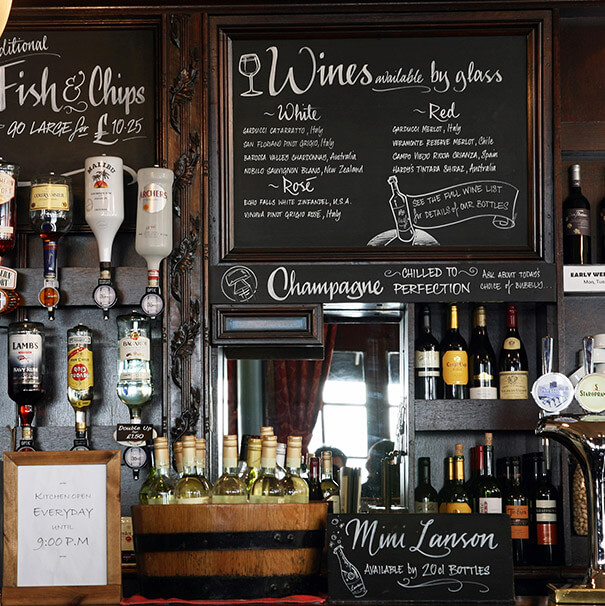 ditional
Fish & Chips
GO LARGE for £10.25
Wines available by glass
~White
GARDUCCI CATARRATTO, Italy
SAN FLORIANO PINOT GRIGIO, Italy
BAROSSA VALLEY CHARDONNAY, Australia
NOBILO SAUVIGNON BLANC, New Zealand
~Rosé
ECHO FALLS WHITE ZINFANDEL, U.S.A.
VINUVA PINOT GRIGIO ROSÉ, Italy
~Red
GARDUCCI MERLOT, Italy
VERAMONTE RESERVE MERLOT, Chile
CAMPO VIEJO RIOJA CRIANZA, Spain
HARDY'S TINTARA SHIRAZ, Australia
SEE THE FULL WINE LIST
for DETAILS of OUR BOTTLES
Champagne
~CHILLED TO~
PERFECTION
ASK ABOUT TODAY'S
CHOICE OF BUBBLY...
MALIBU
ARCHERS
EARLY WE
Mon, Tue
LAMB'S
NAVY RUM
BACARDI
Double Up
£1.50
STAROPRAMEN
KITCHEN OPEN
EVERYDAY
UNTIL
9:00 P.M
Mini Lanson
AVAILABLE BY 20cl BOTTLES